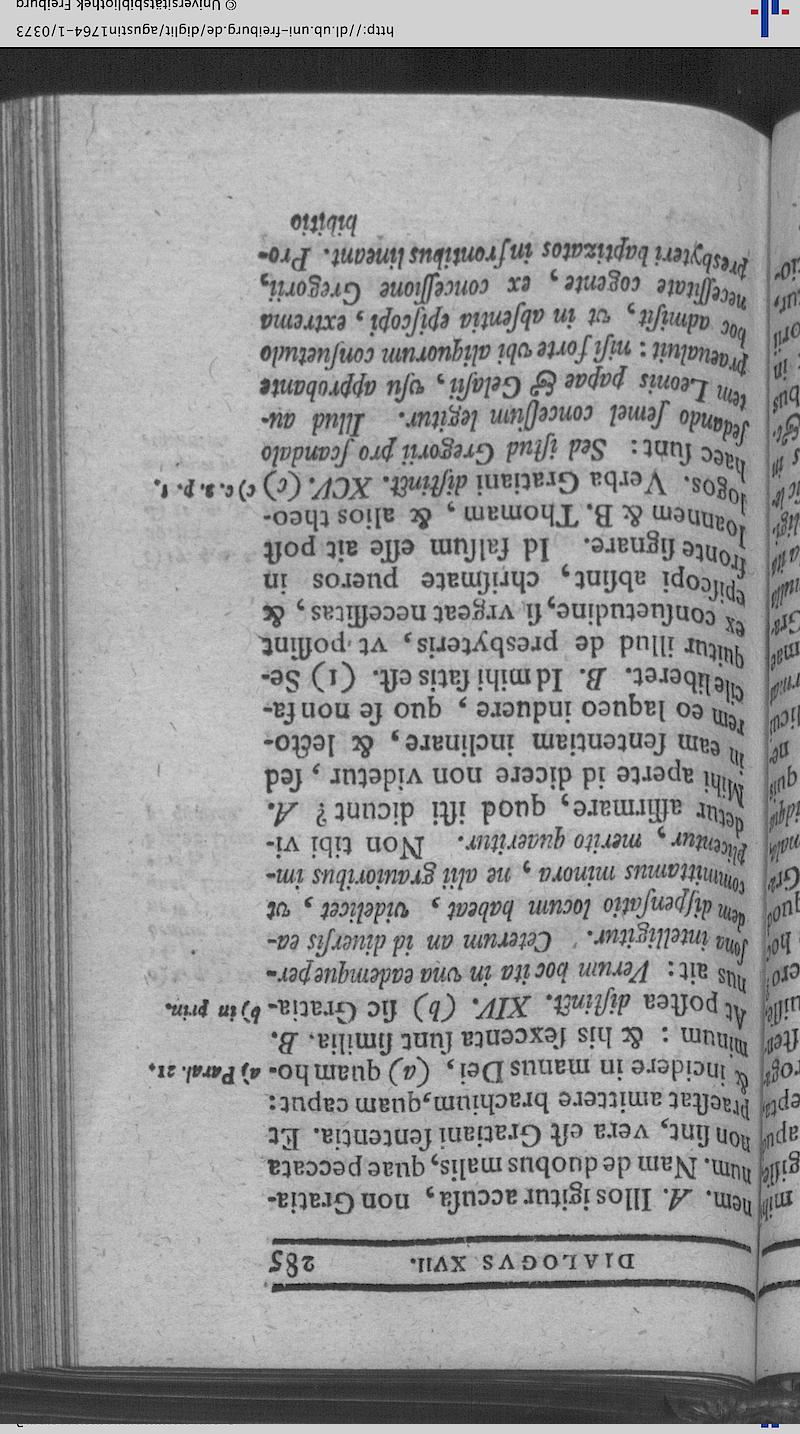 DIALOGVS XVII. 285
nem. A. Illos igitur accuſa, non Gratia-
num. Nam de duobus malis, quae peccata
non ſint, vera eſt Gratiani ſententia. Et
praeſtat amittere brachium, quam caput:
& incidere in manus Dei, (a) quam ho- a) Paral. 21.
minum: & his ſexcenta ſunt ſimilia. B.
At poſtea diſtinct. XIV. (b) ſic Gratia- b) in prin.
nus ait: Verum hoc ita in vna eademque per-
ſona intelligitur. Ceterum an id diuerſis ea-
dem diſpenſatio locum habeat, videlicet, vt
committamus minora, ne alii grauioribus im-
plicentur, merito quaeritur. Non tibi vi-
detur affirmare, quod iſti dicunt? A.
Mihi aperte id dicere non videtur, ſed
in eam ſententiam inclinare, & lecto-
rem eo laqueo induere, quo ſe non fa-
cile liberet. B. Id mihi ſatis eſt. (1) Se-
quitur illud de presbyteris, vt poſſint
ex conſuetudine, ſi vrgeat neceſſitas, &
epiſcopi abſint, chriſmate pueros in
fronte ſignare. Id falſum eſſe ait poſt
Ioannem & B. Thomam, & alios theo-
logos. Verba Gratiani diſtinct. XCV. (c) c) c. 2. p. 1.
haec ſunt: Sed iſtud Gregorii pro ſcandalo
ſedando ſemel conceſſum legitur. Illud au-
tem Leonis papae & Gelaſii, vſu approbante
praeualuit: niſi forte vbi aliquorum conſuetudo
hoc admiſit, vt in abſentia epiſcopi, extrema
neceſſitate cogente, ex conceſſione Gregorii,
presbyteri baptizatos in frontibus lineant. Pro-
hibitio
http://dl.ub.uni-freiburg.de/diglit/agustin1764-1/0373
© Universitätsbibliothek Freiburg